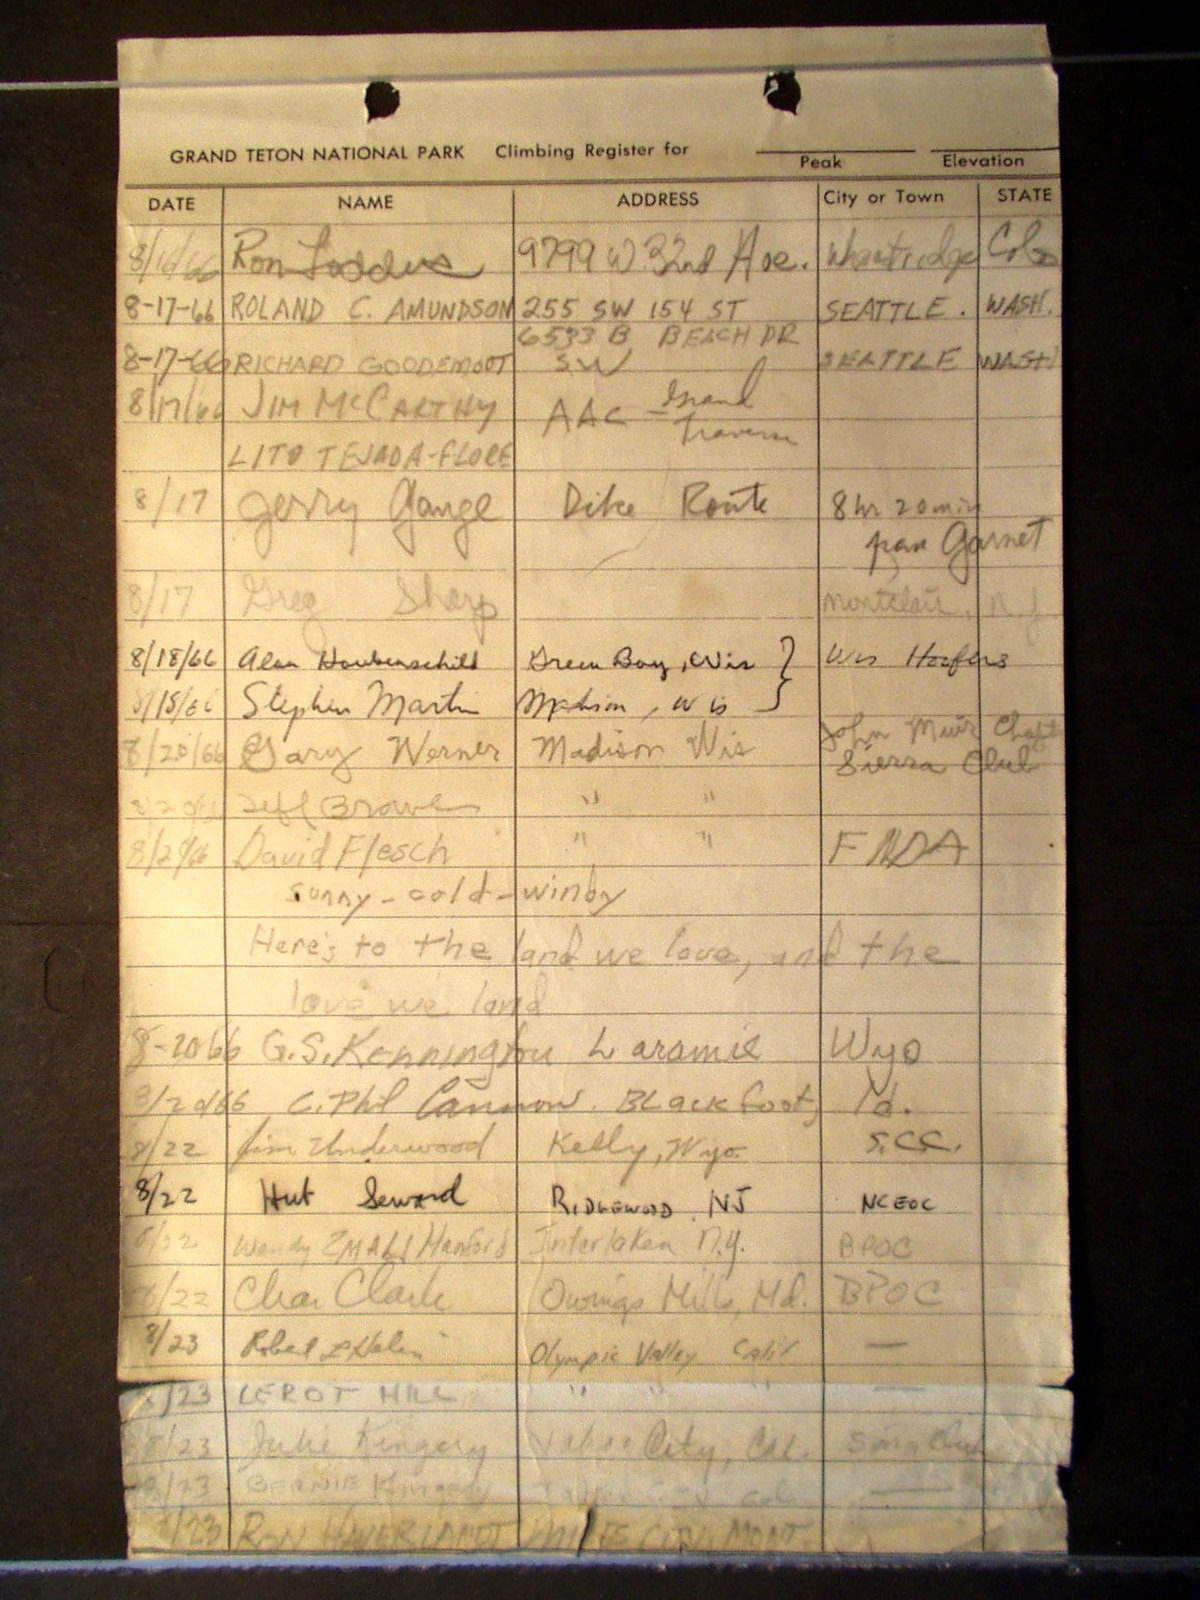 GRAND TETON NATIONAL PARK Climbing Register for
Peak Elevation
DATE NAME ADDRESS City or Town STATE
Ron 9799 W. 32nd Ave. Wheatridge Colo
8-17-66 ROLAND C. AMUNDSON 255 SW 154 ST SEATTLE. WASH.
8-17-66 RICHARD GOODEMOOT 6533 B BEACH DR SW SEATTLE WASH
8/17/66 JIM McCARTHY AAC - Grand Traverse
LITO TEJADA-FLORE
8/17 Jerry Gange Dike Route 8 hr 20 min
from Garnet
8/17 Greg Sharp Montclair, N.J.
8/18/66 Alan Green Bay, Wis } Wis Hoofers
Stephen Martin Madison, Wis
8/20/66 Gary Werner Madison Wis John Muir Chapt
Sierra Club
Jeff " "
David Flesch " "
sunny - cold - windy
Here's to the land we love, and the
love we land
8-20 66 G.S. Kennington Laramie Wyo
8/20/66 C. Phil Cannon. Blackfoot, Id.
8/22 Jim Underwood Kelly, Wyo.
8/22 Hut Seward RIDGEWOOD, NJ NCEOC
8/22 Wendy Hanford Interlaken N.Y. BPOC
8/22 Clark Owings Mills, Md. BPOC
8/23 Olympic Valley Calif —
8/23 LEROY HILL " " " —
8/23 Julie Kingery Tahoe City, Cal.
8/23 BERNIE Kingery —
8/23 RON MILES CITY, MONT.